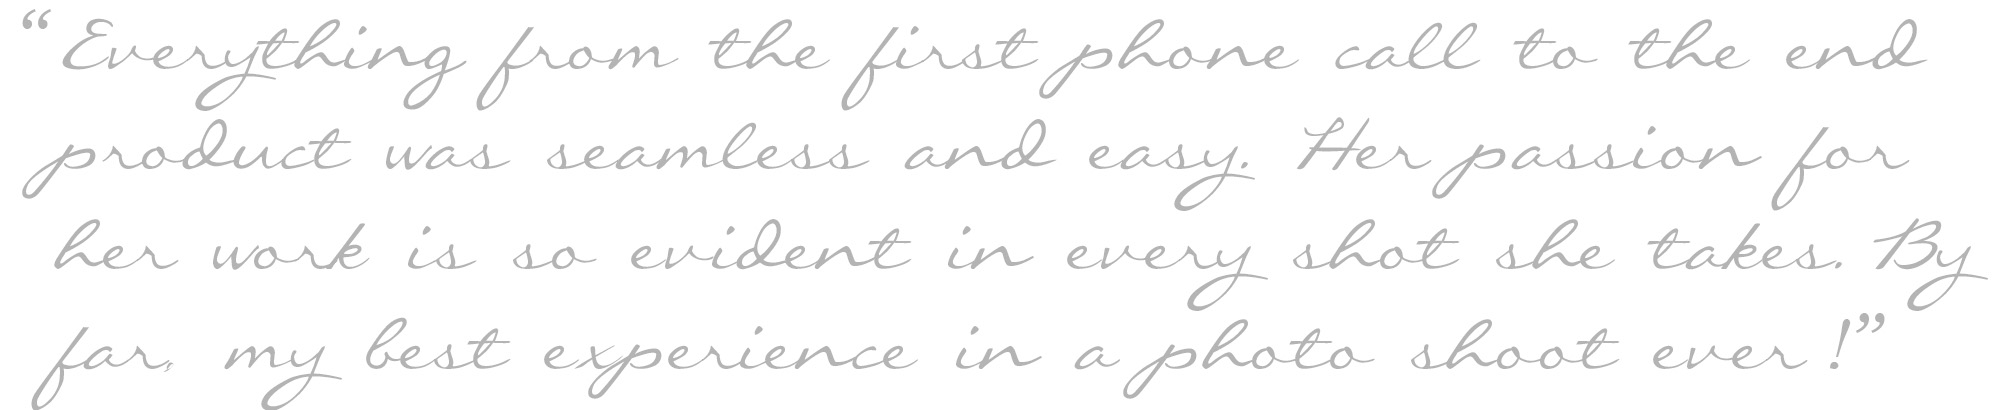 “Everything from the first phone call to the end
product was seamless and easy. Her passion for
her work is so evident in every shot she takes. By
far, my best experience in a photo shoot ever!”